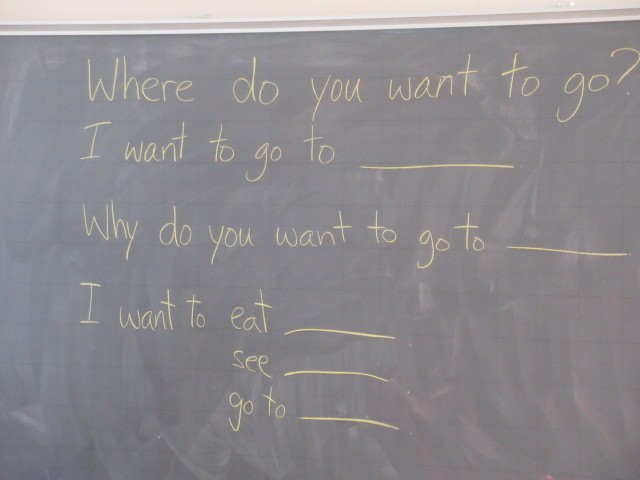 Where do you want to go?
I want to go to ______
Why do you want to go to ______
I want to eat ______
see ______
go to ______